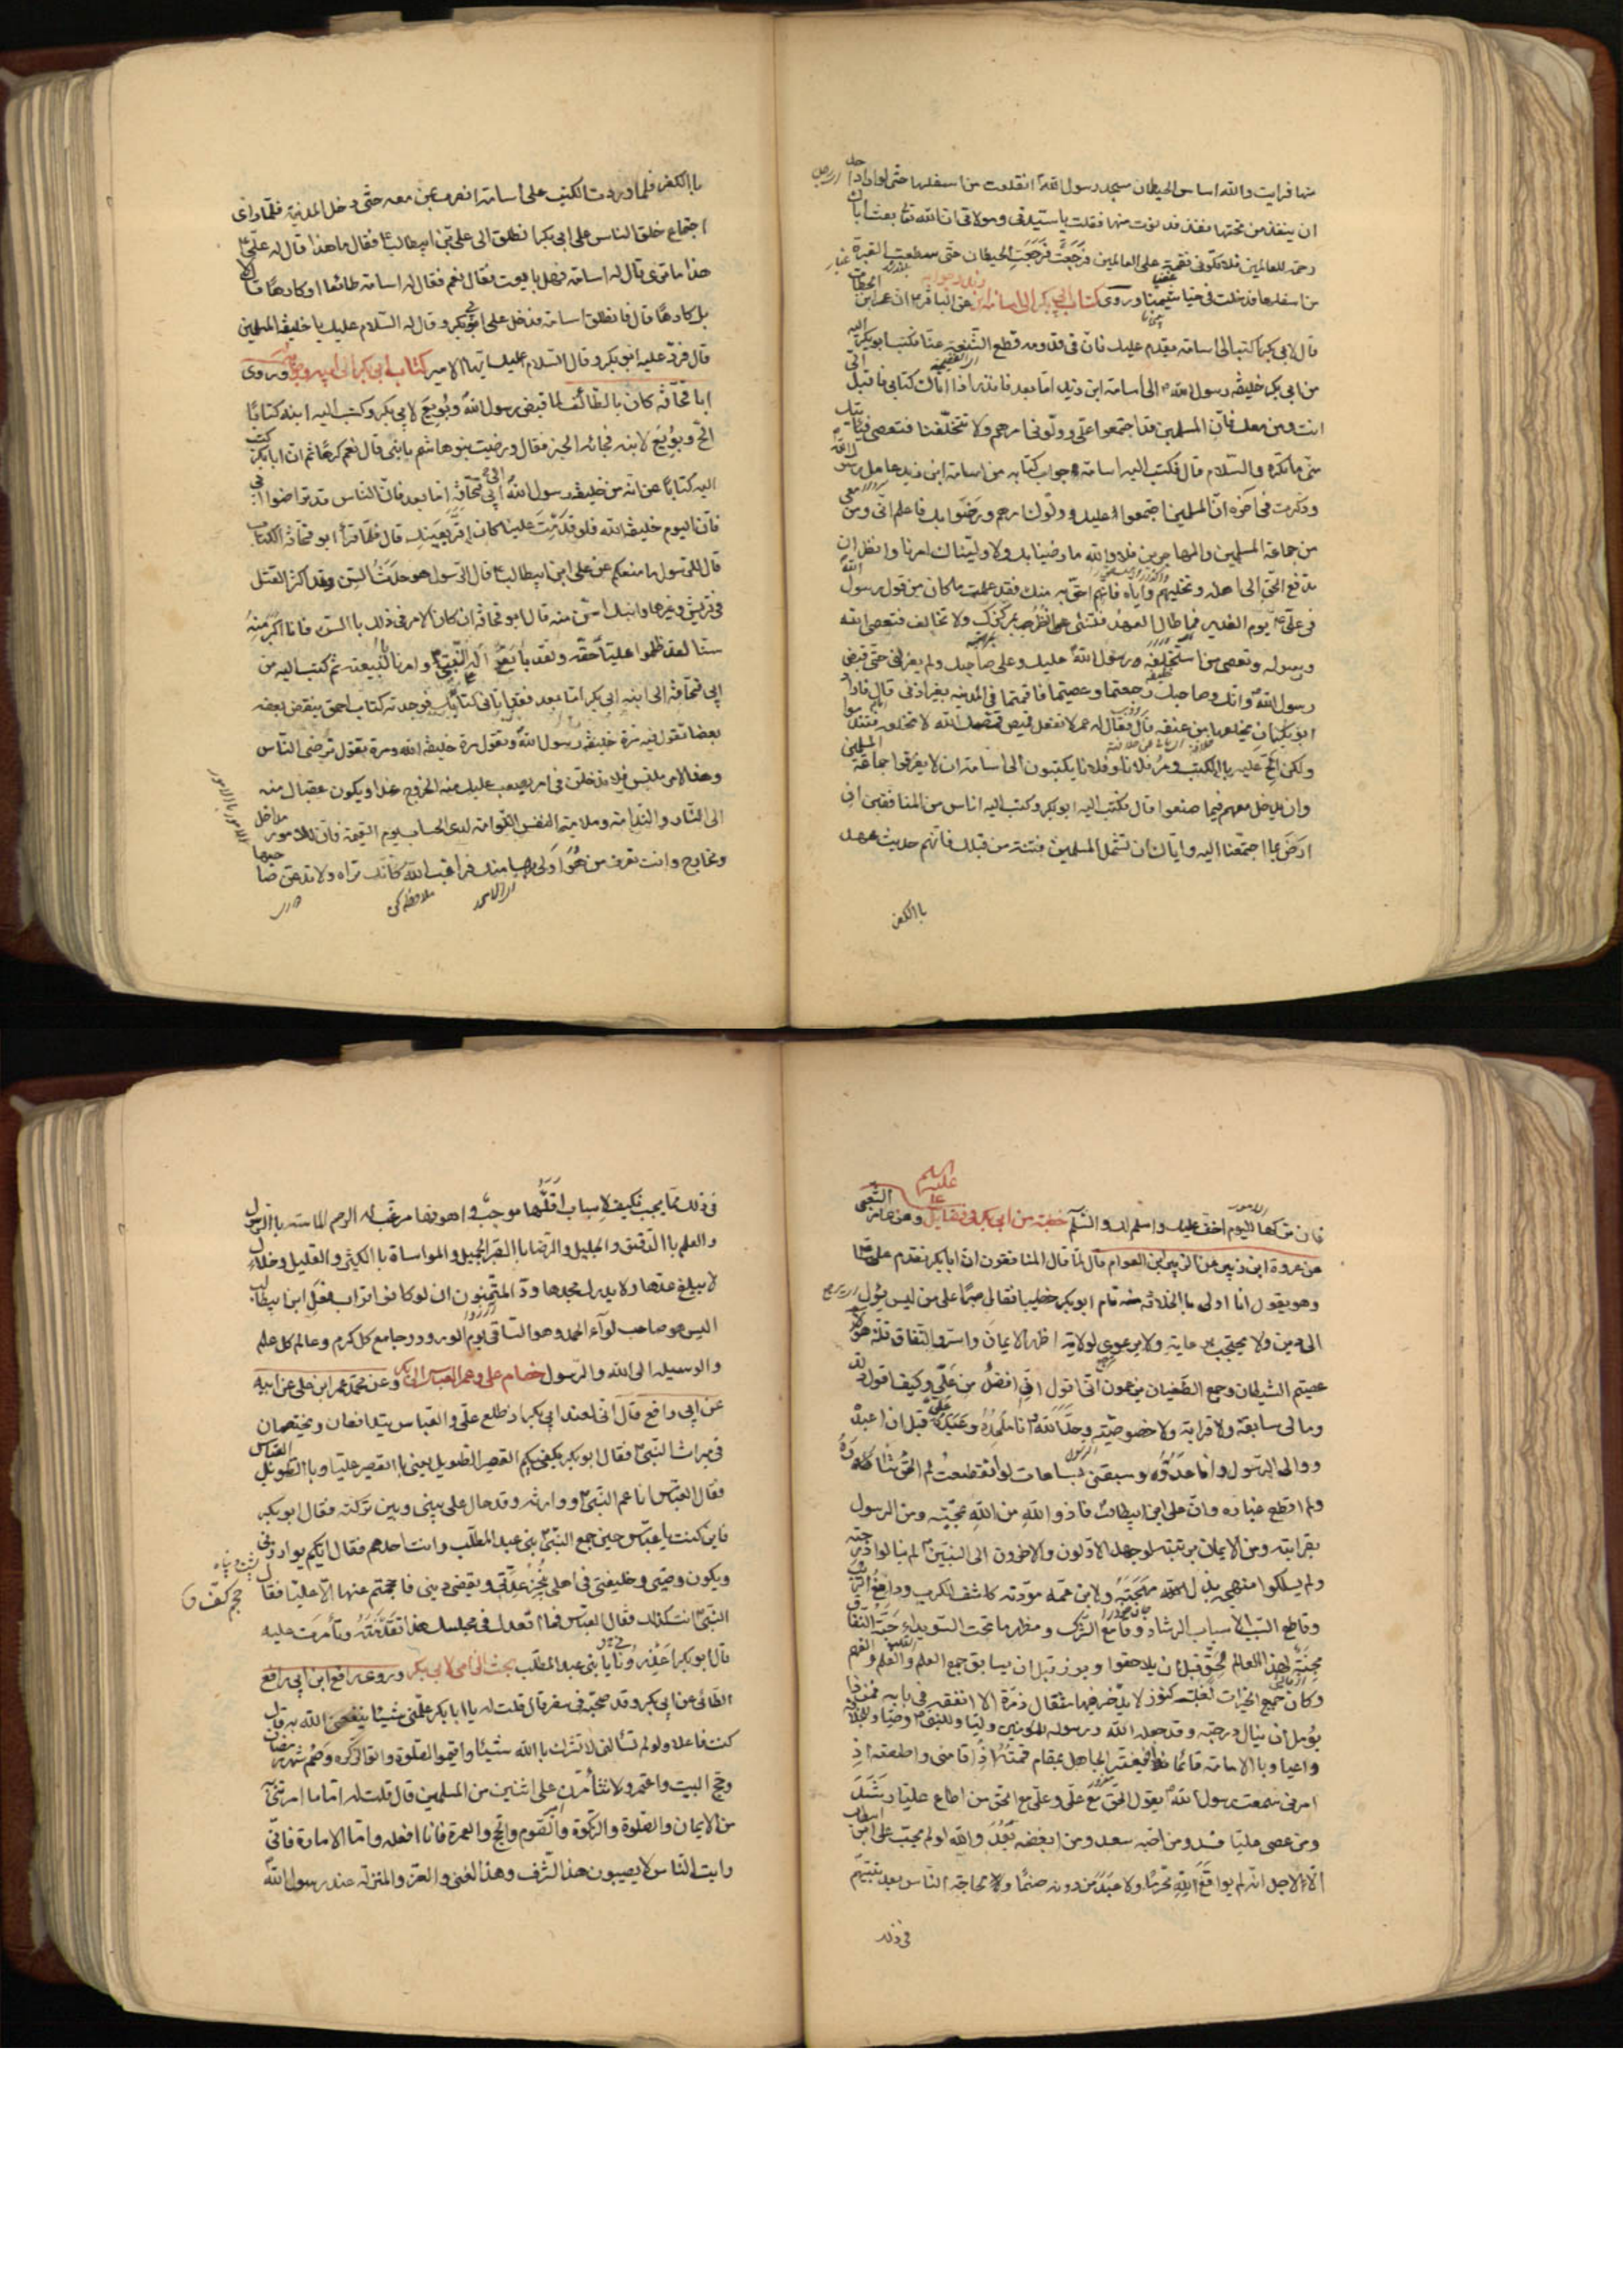 منها فرايت والله اساس الحيطان مسجد رسول الله انقلعت من اسفلها حتى لو اراد
ان ينفذ من تحتها نفذ فدنوت منها فقلت يا سيدتي ومولاتي ان الله تعا بعث اباك
رحمة للعالمين فلا تكوني نقمة على العالمين فرجعت فرجعت الحيطان حتى سطعت الغبرة
من اسفلها فدخلت في خياشيمنا وروى كتاب ابي بكر الى اسامة ابن عن الباقر ان عمر ابن
قال لابي بكر اكتب الى اسامة يقدم عليك فان في قدومه قطع الشنعة عنا فكتب ابو بكر اليه
من ابي بكر خليفة رسول الله الى اسامة ابن زيد اما بعد فانظر اذا اتاك كتابي فاقبل الي
انت ومن معك فان المسلمين قد اجتمعوا علي وولوني امرهم ولا تتخلفنا فتعصي
مني ما تكره والسلام قال فكتب اليه اسامة جواب كتابه من اسامة ابن زيد عامل رسول الله
وذكرت في اخره ان المسلمين اجتمعوا عليك وولوك امرهم ورضوا بك فاعلم اني ومن معي
من جماعة المسلمين والمهاجرين فلا والله ما رضينا بك ولا وليناك امرنا وانظر ان
تدفع الحق الى اهله وتخليهم واياه فانهم احق به منك فقد علمت ما كان من قول رسول الله
في علي يوم الغدير فما طال العهد فتنسى انظر بمركزك ولا تخالف فتعصي الله
ورسوله وتعصي من استخلفه رسول الله عليك وعلى صاحبك ولم يعزلني حتى قبض
رسول الله وانك وصاحبك رجعتما وعصيتما فاقمتما في المدينة بغير اذني قال فاراد
ابو بكر ان يخلعها من عنقه قال فقال له عمر لا تفعل قميص قمصك الله لا تخلعه فتندم
ولكن الح عليه بالكتب ومر فلانا وفلانا يكتبون الى اسامة ان لا يفرق جماعة المسلمين
وان يدخل معهم فيما صنعوا قال فكتب اليه ابو بكر وكتب اليه اناس من المنافقين ان
ارض بما اجتمعنا اليه واياك ان تشمل المسلمين فتنة من قبلك فانهم حديث عهد
باالكفر
باالكفر فلما وردت الكتب على اسامة انصرف بمن معه حتى دخل المدينة فلما راى
اجتماع خلق الناس على ابي بكر انطلق الى علي بن ابيطالب فقال ما هذا قال له علي
هذا ما ترى قال له اسامة فهل بايعت فقال نعم فقال له اسامة طائعا او كارها قال لا
بل كارها قال فانطلق اسامة فدخل على ابي بكر وقال له السلام عليك يا خليفة المسلمين
قال فرد عليه ابو بكر وقال السلام عليك ايها الامير كتاب ابي بكر الى ابيه وروى
ابا قحافة كان بالطائف لما قبض رسول الله وبويع لابي بكر وكتب اليه ابنه كتابا
اليه كتابا عنوانه من خليفة رسول الله الى ابي قحافة اما بعد فان الناس قد تراضوا بي
فان اليوم خليفة الله فلو قدمت علينا كان اقر بعينك قال فلما قرأ ابو قحافة الكتاب
قال للرسول ما منعكم عن علي ابن ابيطالب قال الرسول هو حدث السن وقد اكثر القتل
في قريش وغيرها وابنك اسن منه قال ابو قحافة ان كان الامر في ذلك باالسن فانا اكبر منه
سنا لقد ظلموا عليا حقه ولقد بايع له النبي وامرنا ببيعته ثم كتب اليه من
ابي قحافة الى ابنه ابي بكر اما بعد فقد اتاني كتابك فوجدته كتاب احمق ينقض بعضه
بعضا تقول فيه مرة خليفة رسول الله وتقول مرة خليفة الله ومرة تقول تراضى الناس
وهذا امر ملتبس فلا تدخلن في امر يصعب عليك منه الخروج غدا ويكون عقباك منه
الى النار والندامة وملامة النفس اللوامة لدى الحساب يوم القيمة فان للامور مداخل
ومخارج وانت تعرف من هو اولى بها منك فراقب الله كانك تراه ولا تدعن صاحبها
فان تركها اليوم اخف عليك واسلم لك والسلم خطبة من ابي بكر في فضايل علي عليه السلم وعن عامر الشعبي
عن عروة ابن زبير عن الزبير ابن العوام قال لما قال المنافقون ان ابا بكر تقدم عليا
وهو يقول انا اولى باالخلافة منه قام ابو بكر خطيبا فقال صبرا على من ليس يؤل
الى دين ولا يحتجب برعاية ولا يرعوي لولاية اظهر الايمان واسر النفاق
عصبة الشيطان وجمع الطغيان يزعمون اني اقول اني افضل من علي وكيف اقول ذلك
وما لي سابقته ولا قرابته ولا خصوصيته وحد الله وانا ملحده وعبد علي قبل ان اعبده
ووالى الرسول وانا عدوه وسبقني بساعات لو انقطعت لم الحق
ولم اقطع غباره وان علي ابن ابيطالب فاز والله من الله بمحبته ومن الرسول
بقرابته ومن الايمان برتبته لو جهد الاولون والاخرون الا النبيين لم ينالوا درجته
ولم يسلكوا منهجه بذل لله مهجته ولابن عمه مودته كاشف الكرب ودافع الريب
وقاطع السبب الا سباب الرشاد وقامع الشرك ومظهر ما تحت السويداء حبة النفاق
لهذا العالم لحق قبل ان يلاحقوا وبرز قبل ان يسابق جمع العلم والحلم والفهم
وكان جميع الخيرات لقلبه كنوز لا يدخر منها مثقال ذرة الا انفقه في بابه
يؤمل ان ينال درجته وقد جعله الله ورسوله للمؤمنين وليا وللنبي وصيا
واعيا وباالامامة قائما الجاهل بمقام قمته اذ اقامني واطعته اذ
امرني سمعت رسول الله يقول الحق مع علي وعلي مع الحق من اطاع عليا رشد
ومن عصى عليا فسد ومن احبه سعد ومن ابغضه بعد والله لو لم يحب علي ابن ابيطالب
الا لاجل انه لم يواقع لله محرما ولا عبد من دونه صنما ولا لحاجة الناس بعد نبيهم
في ذلك
في ذلك مما يجب فكيف لاسباب اقلها موجب واهونها مرغب له الرحم الماسة باالرسول
والعلم باالدقيق والجليل والرضا باالصبر الجميل والمواساة باالكثير والقليل وخلال
لا يبلغ عدها ولا يدرك مجدها ود المتمنون ان لو كانوا تراب فعل ابن ابيطالب
اليس هو صاحب لواء الحمد وهو الساقي يوم الورود وجامع كل كرم وعالم كل علم
والوسيلة الى الله والرسول خصام علي وعمه العباس الى ابي بكر وعن محمد عمر ابن علي عن ابيه
عن ابي رافع قال اني لعند ابي بكر اذ طلع علي والعباس يتدافعان ويختصمان
في ميراث النبي فقال ابو بكر يكفيكم القصير الطويل يعني باالقصير عليا وباالطويل العباس
فقال العباس انا عم النبي ووارثه وقد حال علي بيني وبين تركته فقال ابو بكر
فاين كنت يا عباس حين جمع النبي بني عبد المطلب وانت احدهم فقال ايكم يوازرني
ويكون وصيي وخليفتي في اهلي ينجز عدتي ويقضي ديني فاحجمتم عنها الا عليا فقال
النبي انت كذلك فقال العباس فما اقعدك في مجلسك هذا تقدمته وتأمرت عليه
قال ابو بكر يا بني عبد المطلب بحث الطائي لابي بكر وروى رافع ابن ابي رافع
الطائي عن ابي بكر وقد صحبته في سفر قال قلت له يا ابا بكر علمني شيئا ينفعني الله به قال
كنت فاعلا ولو لم تسألني لا تشرك باالله شيئا واقيموا الصلوة واتوا الزكوة وصم شهر رمضان
وحج البيت واعتمر ولا تتأمرن على اثنين من المسلمين قال قلت له اما ما امرتني
من الايمان والصلوة والزكوة والصوم والحج والعمرة فانا افعله واما الامارة فاني
رايت الناس لا يصيبون هذا الشرف وهذا الغنى والعز والمنزلة عند رسول الله